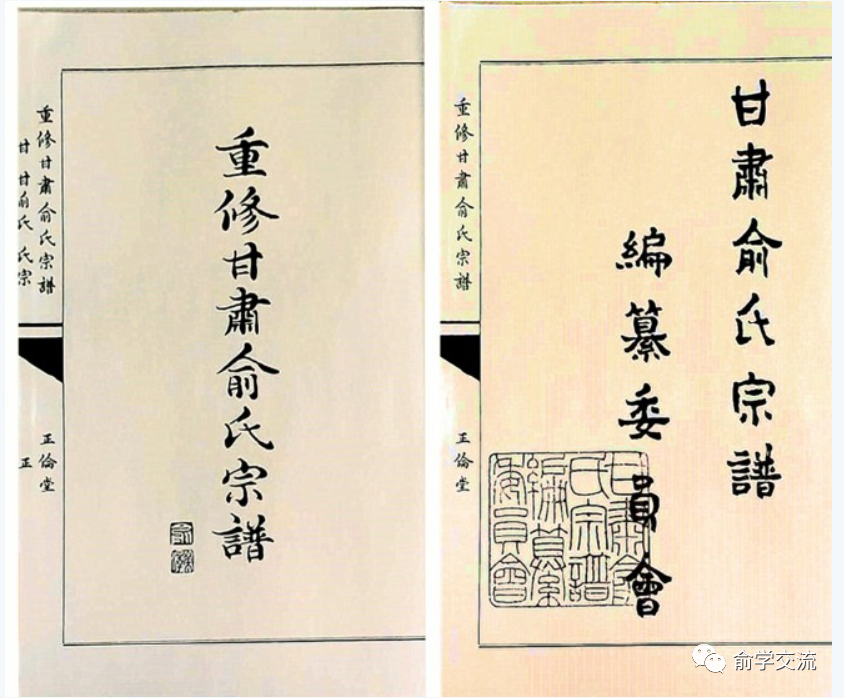 重修甘肅俞氏宗譜
重修甘肅俞氏宗譜
甘 甘俞氏 氏宗
正倫堂
正
甘肅俞氏宗譜
編纂委員會
甘肅俞
氏宗譜
編纂
委員會
重修甘肅俞氏宗譜
正倫堂
俞学交流